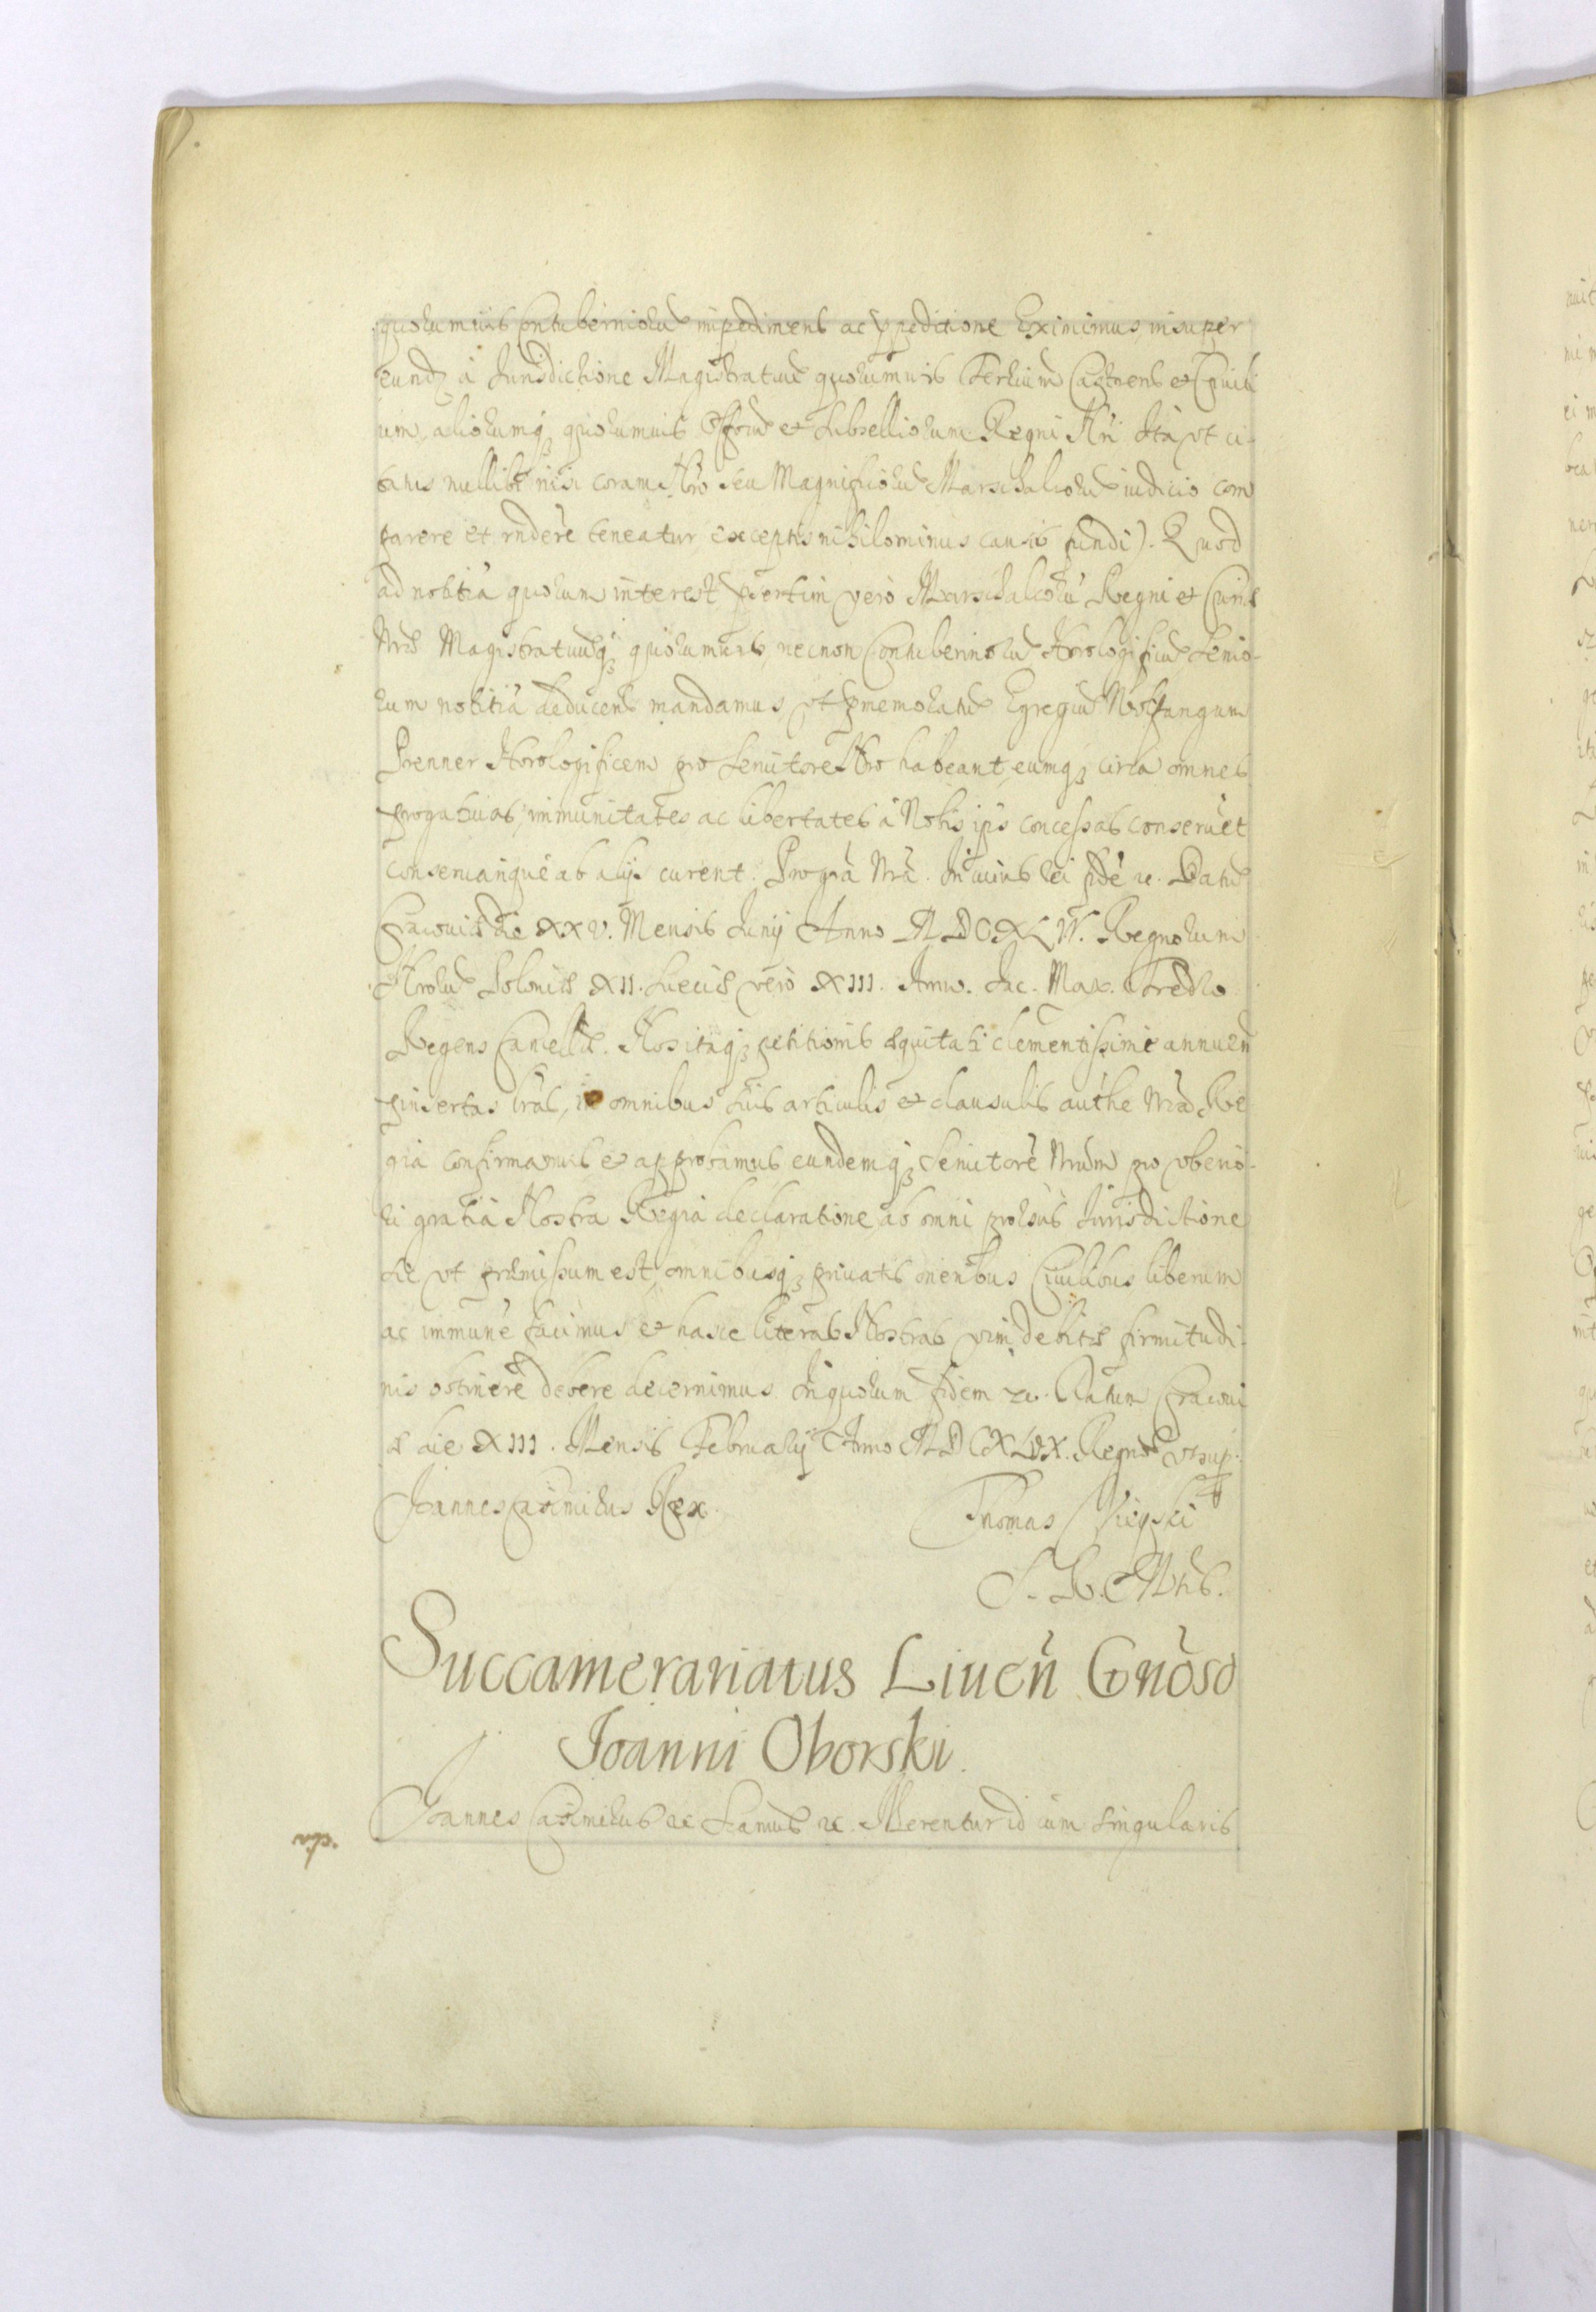 quorumuis Contuberniorũ impediment ac ppeditione Eximimus, insuper
eundẽ à Jurisdictione Magistratuũ quorumuis Terrium Castrens et Ciuili
um, aliorumq₃ quorumuis Offorũ et Subselliorum Regni Nri Ita vt ci
tatus nullibi nisi coram Nrõ seu Magnificorũ Marschalcorũ iudicio com
parere et rndere teneatur, exceptis nihilominus causis fundi). Quod
ad notitiã quorum interest psertim vero Marschalcorũ Regni et Curiæ
Nræ Magistratuũq₃ quorumuis, necnon Contuberniorũ Horologificũ Senio-
rum notitiã deducens mandamus, vt pmemoratũ Egregiũ Wolfangum
Prenner Horologificem pro Seruitore Nro habeant, eumq₃ circa omnes
progatiuas, immunitates ac libertates à Nobis ipsi concessas conseruẽt
conseruariquẽ ab alijs curent. Pro grã Nrã. In cuius rei fidẽ &. Datũ
Cracouiæ die XXV. Mensis Junij Anno MDCXLIV. Regnorum
Nrorũ Poloniæ XII. Sueciæ vero XIII. Annо. Jac. Max. Fredro
Regens Cancellã. Nos itaq₃ petitionis æquitati clementissime annuen
pinsertas lras, in omnibus suis articulis et clausulis authe Nrã Re
gia confirmamus et approbamus eundemq₃ Seruitorẽ Nrum pro vberio-
ri gratiâ Nostra Regiâ declaratione ab omni prorsus Jurisdictione
sic vt præmissum est, omnibusq₃ priuatis oneribus Ciuilibus liberum
ac immunẽ facimus et hasce literas Nostras vim debitæ firmitudi-
nis obtinere debere decernimus. In quorum fidem &. Datum Cracoui
æ die XIII. Mensis Februarij Anno MDCXLIX. Regnor vt sup.
Joannes Casimirus Rex. Thomas Vieyski
S. R. Mtis.
Succamerariatus Liuen̄ Gnoso
Joanni Oborski.
Joannes Casimirus &c Significamus &c. Merentur id cum singularis